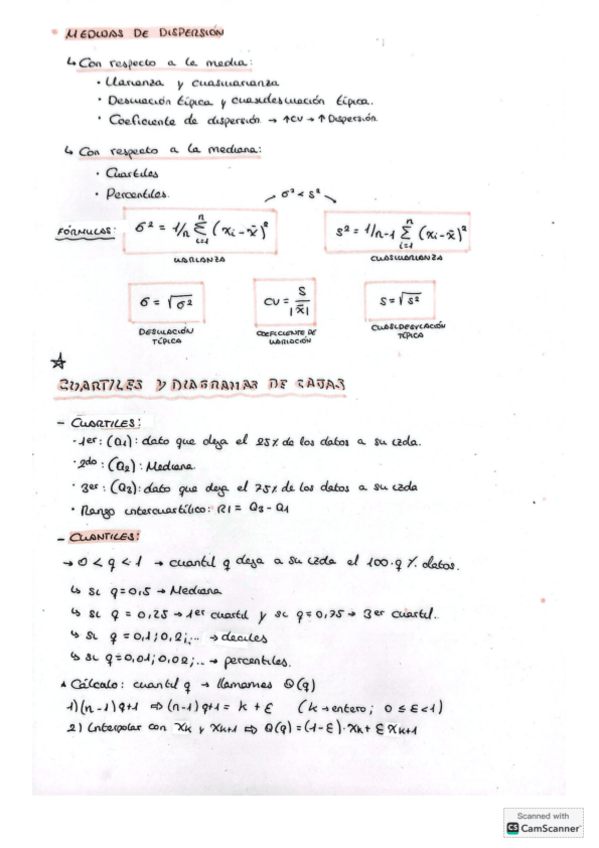 • MEDIDAS DE DISPERSIÓN
↳ Con respecto a la media:
• Varianza y cuasivarianza
• Desviación típica y cuasidesviación típica.
• Coeficiente de dispersión → ↑CV → ↑ Dispersión
↳ Con respecto a la mediana:
• Cuartiles
• Percentiles.
σ² < s²
FÓRMULAS: σ² = 1/n Σ (xi - x̄)² n i=1 s² = 1/n-1 Σ (xi - x̄)² n i=1
VARIANZA CUASIVARIANZA
σ = √σ² CV = S/|x̄| S = √s²
DESVIACIÓN TÍPICA COEFICIENTE DE VARIACIÓN CUASIDESVIACIÓN TÍPICA
☆
CUARTILES Y DIAGRAMAS DE CAJAS
- CUARTILES:
· 1er: (Q1): dato que deja el 25% de los datos a su izda.
· 2do: (Q2): Mediana.
· 3er: (Q3): dato que deja el 75% de los datos a su izda
• Rango intercuartílico: RI = Q3 - Q1
- CUANTILES:
→ 0 < q < 1 → cuantil q deja a su izda el 100·q % datos.
↳ si q = 0,5 → Mediana
↳ si q = 0,25 → 1er cuartil y si q = 0,75 → 3er cuartil.
↳ si q = 0,1; 0,2;... → deciles
↳ si q = 0,01; 0,02;... → percentiles.
▲ Cálculo: cuantil q → llamamos Q(q)
1) (n-1)q+1 ⇒ (n-1)q+1 = k + ε (k → entero; 0 ≤ ε < 1)
2) Interpolar con xk y xk+1 ⇒ Q(q) = (1-ε)·xk + ε xk+1
Scanned with
CS CamScanner